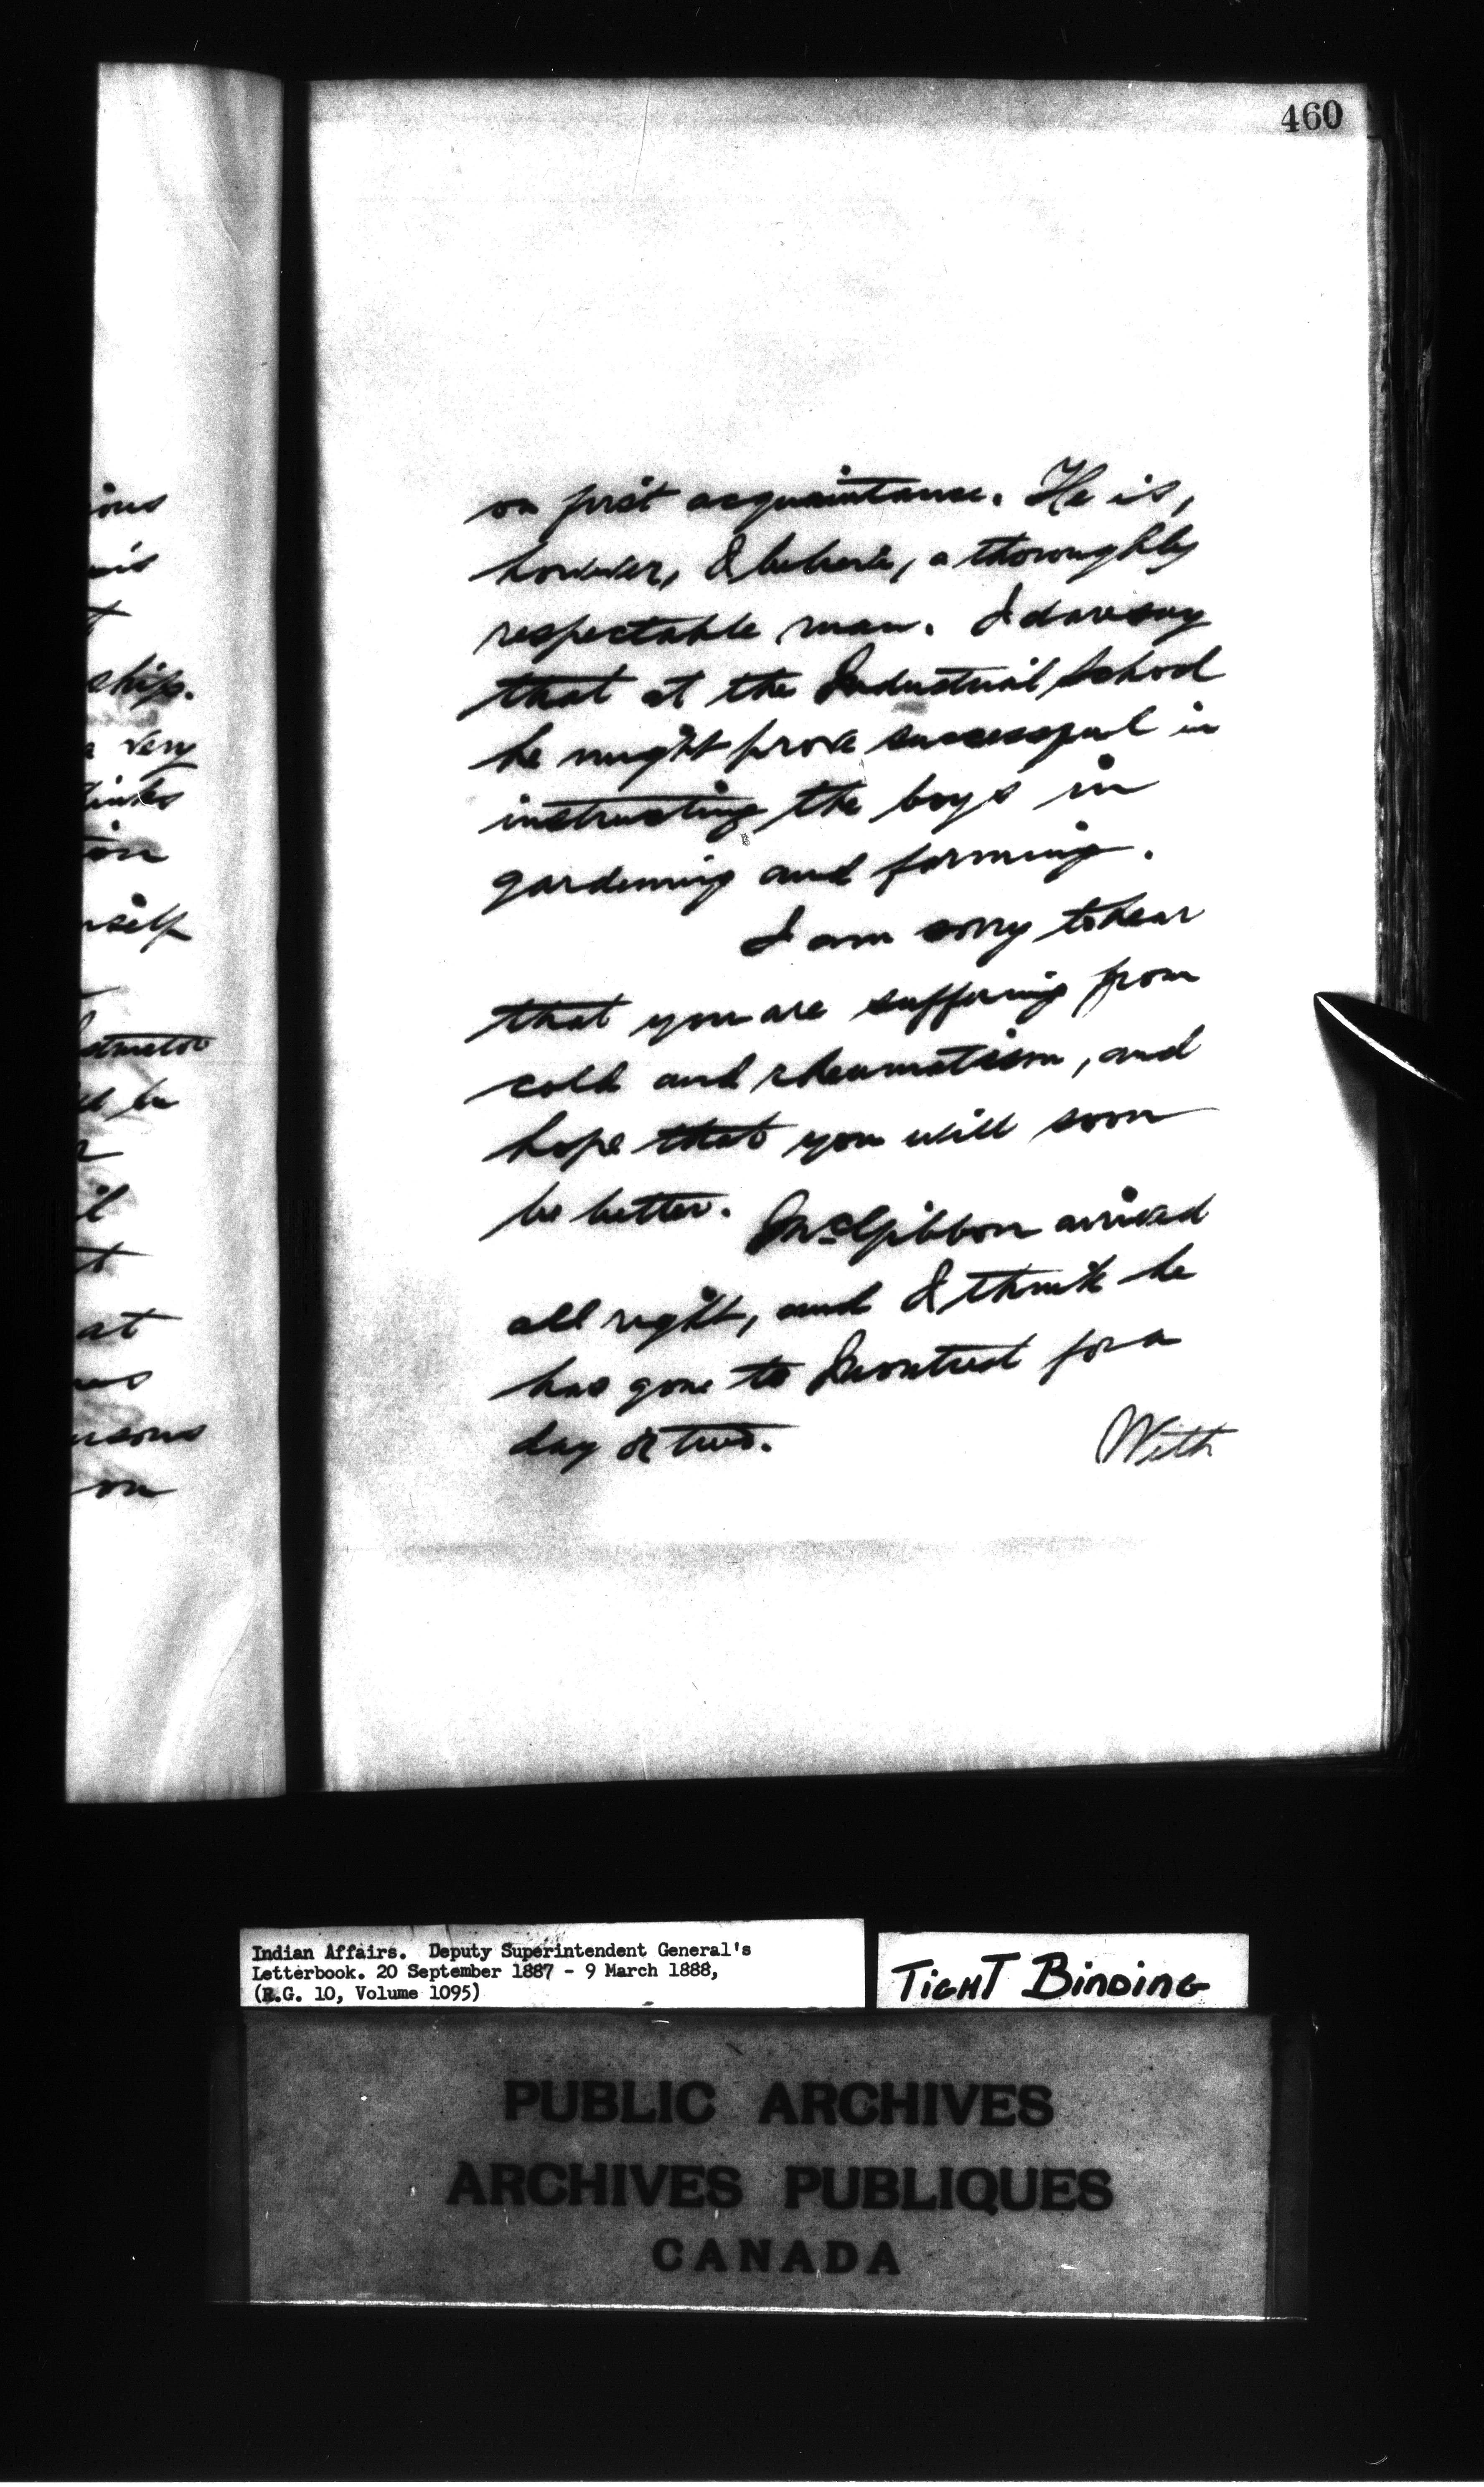 460
ious
is
t
ship.
very
tinks
ion
self
structor
be
il
t
at
sons
on
on first acquaintance. He is,
however, I believe, a thoroughly
respectable man. I daresay
that at the Industrial School
he might prove successful in
instructing the boys in
gardening and farming.
I am sorry to hear
that you are suffering from
cold and rheumatism, and
hope that you will soon
be better. McGibbon arrived
all right, and I think he
has gone to Montreal for a
day or two. With
Indian Affairs. Deputy Superintendent General's
Letterbook. 20 September 1887 - 9 March 1888,
(R.G. 10, Volume 1095)
TIGHT BINDING
PUBLIC ARCHIVES
ARCHIVES PUBLIQUES
CANADA